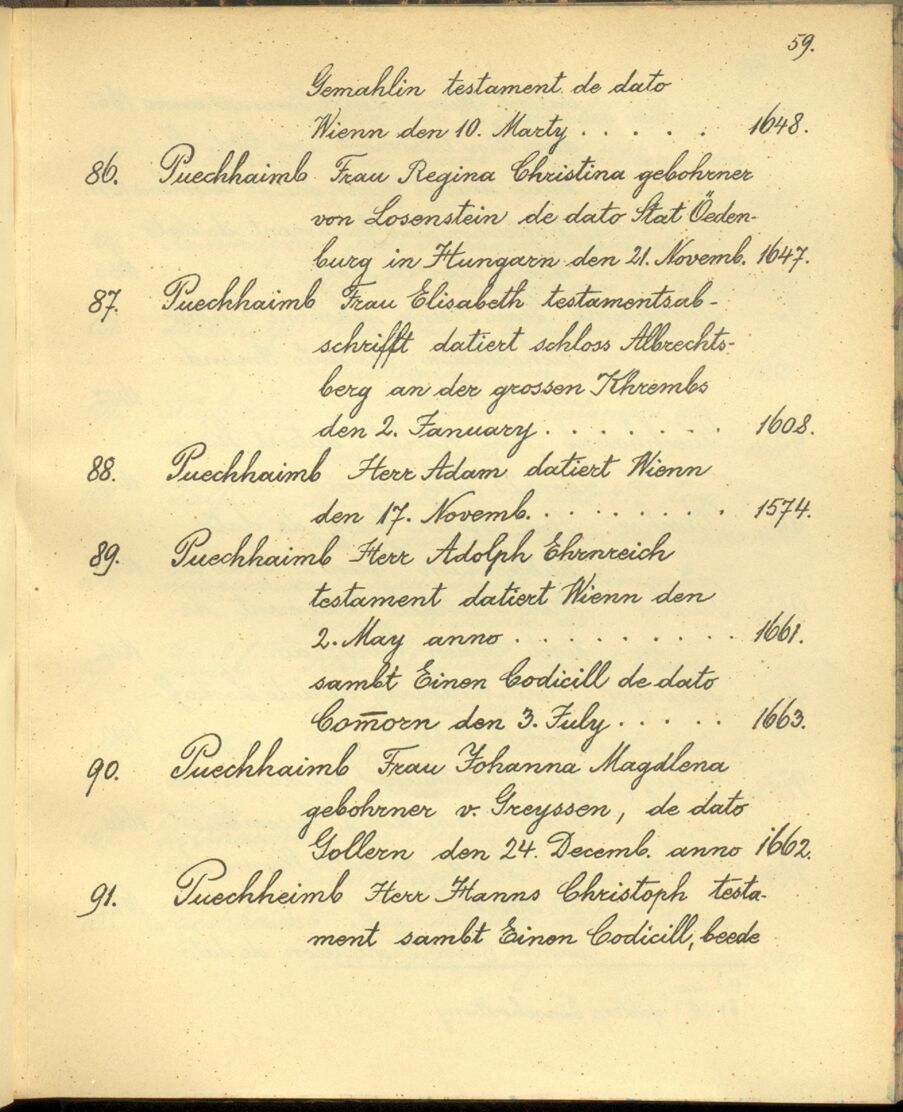 59.
Gemahlin testament de dato
Wienn den 10. Marty . . . . . 1648.
86. Puechhaimb Frau Regina Christina gebohrner
von Losenstein de dato Stat Öeden-
burg in Hungarn den 21. Novemb. 1647.
87. Puechhaimb Frau Elisabeth testamentsab-
schrifft datiert schloss Albrechts-
berg an der grossen Khrembs
den 2. January . . . . . . . 1608.
88. Puechhaimb Herr Adam datiert Wienn
den 17. Novemb. . . . . . . . . 1574.
89. Puechhaimb Herr Adolph Ehrnreich
testament datiert Wienn den
2. May anno . . . . . . . . . . 1661.
sambt Einen Codicill de dato
Com̄orn den 3. July . . . . . 1663.
90. Puechhaimb Frau Johanna Magdlena
gebohrner v. Greyssen, de dato
Gollern den 24. Decemb. anno 1662.
91. Puechheimb Herr Hanns Christoph testa-
ment sambt Einen Codicill, beede